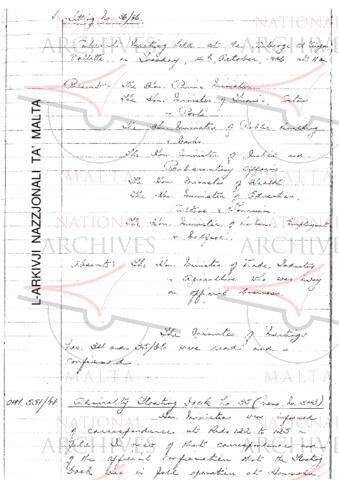 Sitting No. 36/66
Cabinet Meeting held at the Auberge d'Aragon
Valletta, on Tuesday, 4th October, 1966 at
Present: The Hon. Prime Minister
The Hon. Minister of Finance, Customs
& Ports
The Hon. Minister of Public Building
& Works
The Hon. Minister of Justice and
Parliamentary Affairs
The Hon. Minister of Health
The Hon. Minister of Education,
Culture & Tourism
The Hon. Minister of Labour, Employment
& Welfare.
Absent: The Hon. Minister of Trade, Industry
& Agriculture who was away
on official business.
The Minutes of Meetings
Nos. 34 and 35/66 were read and
confirmed.
OPM. 551/64 Admiralty Floating Dock No. 35 (Memo. No.
Hon. Ministers were informed
of correspondence at Reds 122 to 125 in
file. In view of that correspondence and
of the official confirmation that the Floating
Dock was in full operation at
L-ARKIVJI NAZZJONALI TA' MALTA
NATIONAL
ARCHIVES
MALTA